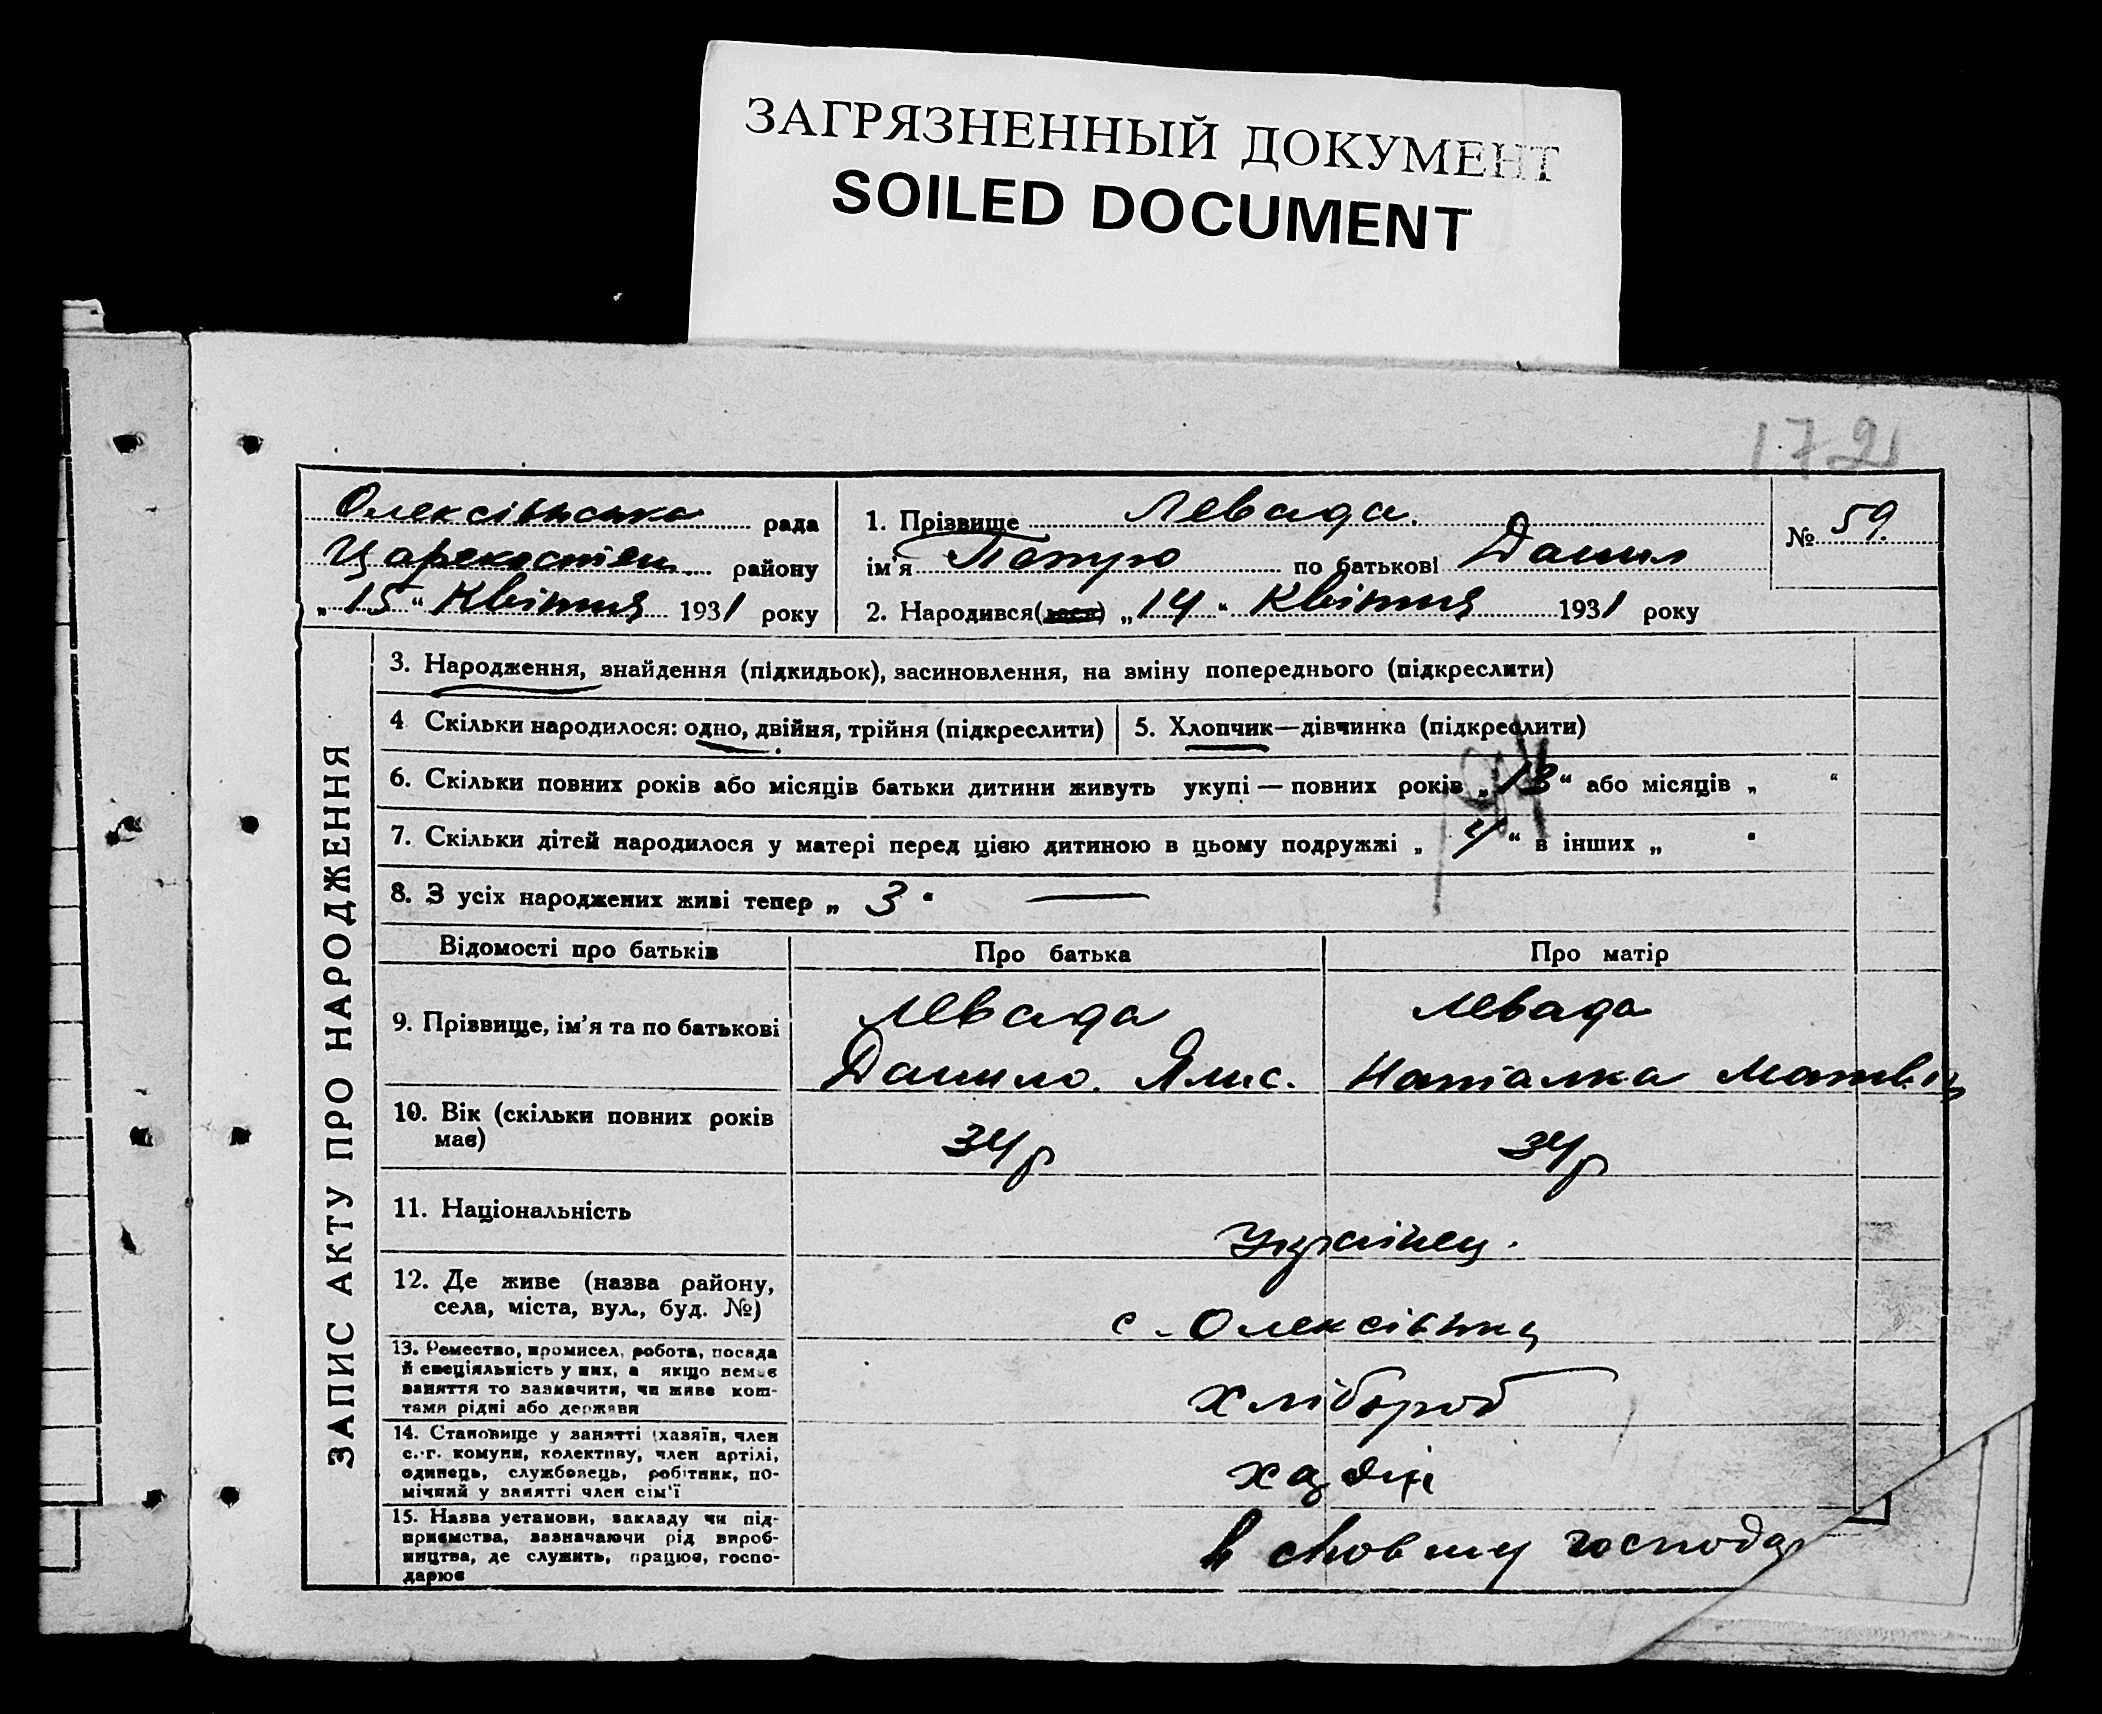 ЗАГРЯЗНЕННЫЙ ДОКУМЕНТ
SOILED DOCUMENT
172
Олексіївська рада
района району
„ 15 “ Квітня 1931 року
1. Прізвище Левада.
ім'я Петро по батькові Данил
2. Народився(лася) „ 14 “ Квітня 1931 року
№ 59.
ЗАПИС АКТУ ПРО НАРОДЖЕННЯ
3. Народження, знайдення (підкидьок), засиновлення, на зміну попереднього (підкреслити)
4 Скільки народилося: одно, двійня, трійня (підкреслити)
5. Хлопчик—дівчинка (підкреслити)
6. Скільки повних років або місяців батьки дитини живуть укупі — повних років „ 13 “ або місяців „ “
7. Скільки дітей народилося у матері перед цією дитиною в цьому подружжі „ 4 “ в інших „ “
8. З усіх народжених живі тепер „ 3 “ —
Відомості про батьків
Про батька
Про матір
9. Прізвище, ім'я та по батькові
Левада
Данило.
Левада
Наталка Матв.
10. Вік (скільки повних років
має)
34 р
34 р
11. Національність
Українец.
12. Де живе (назва району,
села, міста, вул., буд. №)
с. Олексіївки
13. Ремество, промисел, робота, посада
й спеціяльність у них, а якщо немає
заняття то зазначити, чи живе кош-
тами рідні або держави
хлібороб
14. Становище у занятті (хазяїн, член
с.-г. комуни, колективу, член артілі,
одинець, службовець, робітник, по-
мічний у занятті член сім'ї
хазяїн
15. Назва установи, закладу чи під-
приємства, зазначаючи рід вироб-
ництва, де служить, працює, госпо-
дарює
в своєму господар